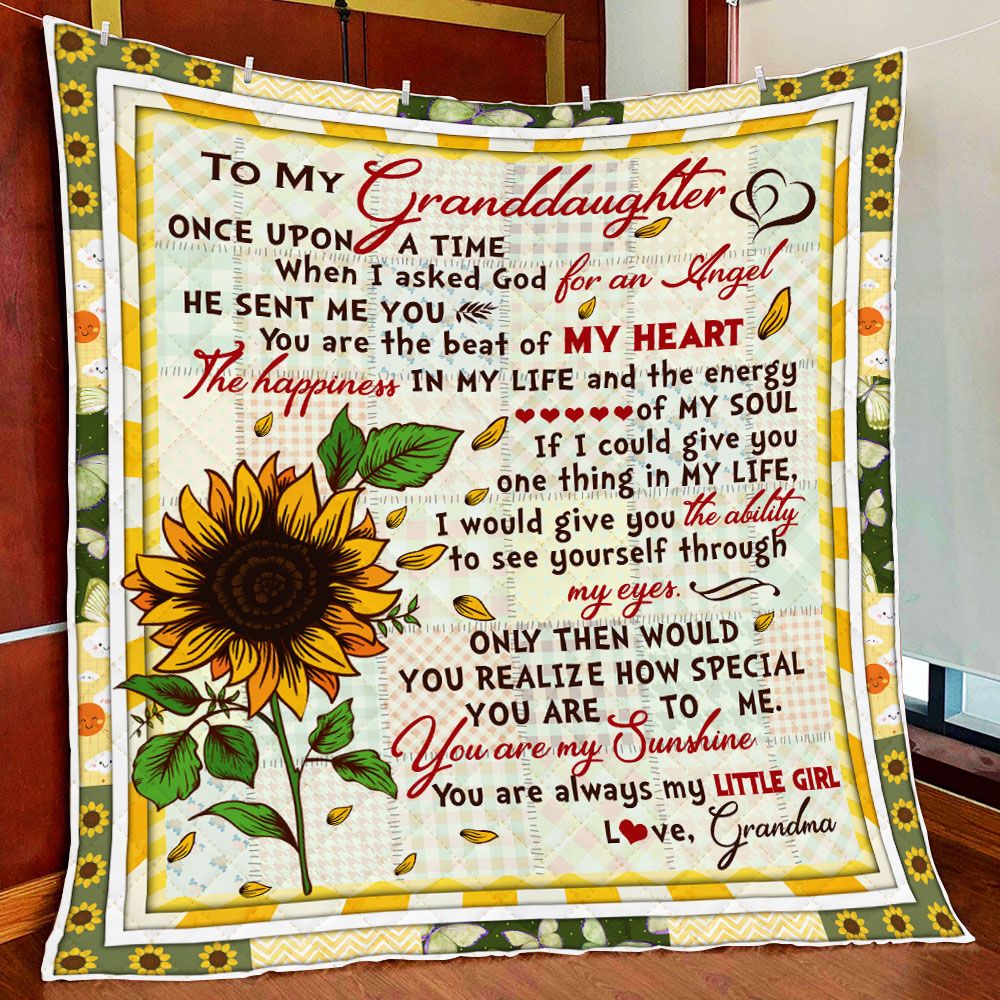 To My Granddaughter
ONCE UPON A TIME
When I asked God for an Angel
HE SENT ME YOU
You are the beat of MY HEART
The happiness IN MY LIFE and the energy
of MY SOUL
If I could give you
one thing in MY LIFE,
I would give you the ability
to see yourself through
my eyes.
ONLY THEN WOULD
YOU REALIZE HOW SPECIAL
YOU ARE TO ME.
You are my Sunshine
You are always my LITTLE GIRL
Love, Grandma